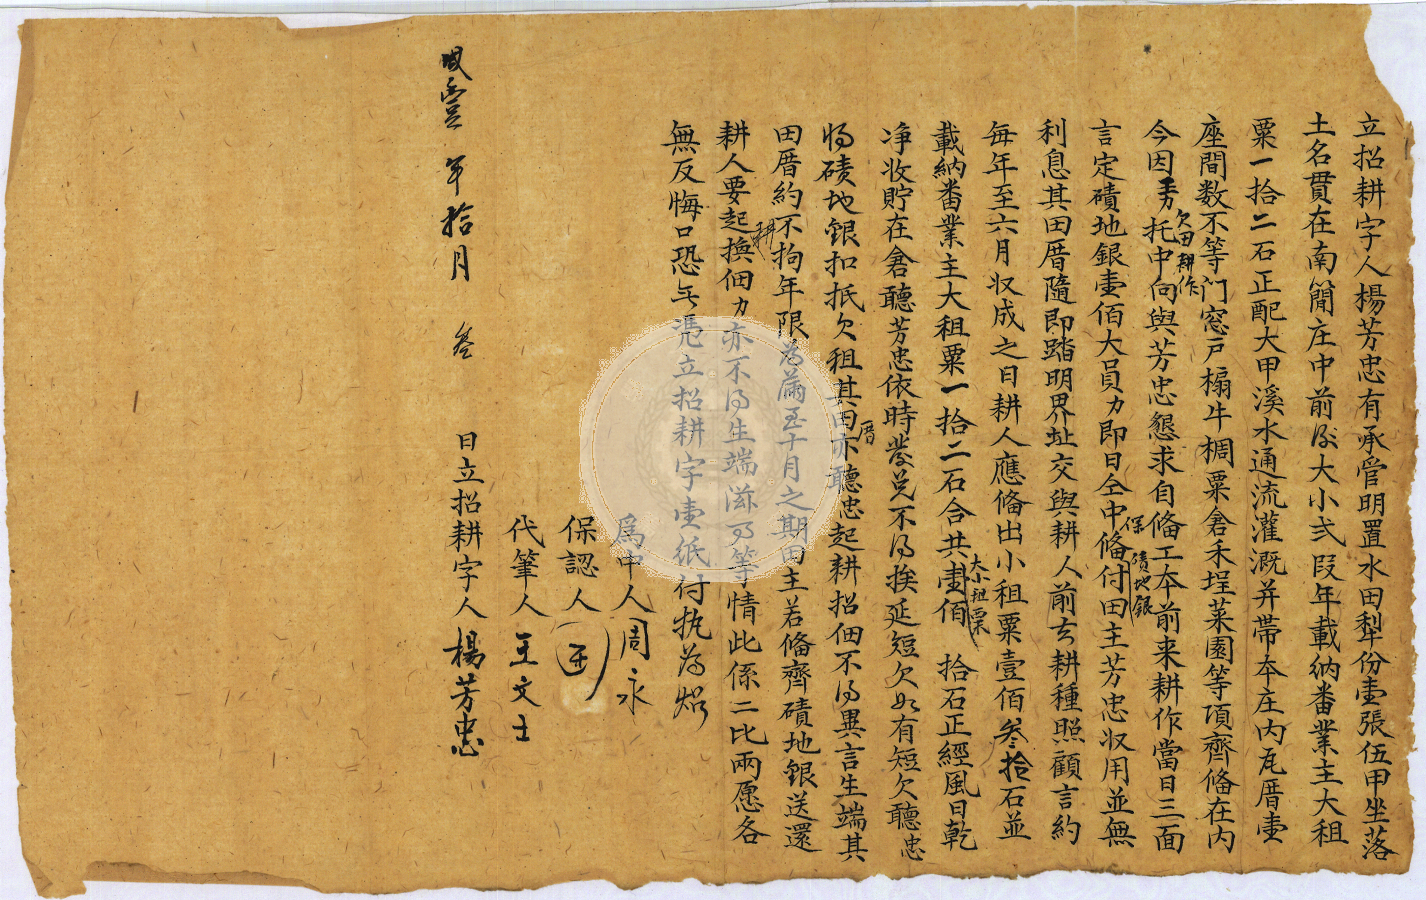 立招耕字人楊芳忠有承管明置水田犁份壹張伍甲坐落
土名貫在南簡庄中前及大小弍叚年載納番業主大租
粟一拾二石正配大甲溪水通流灌溉并帶本庄内瓦厝壹
座間数不等门窓戸榻牛椆粟倉禾埕菜園等項齊俻在内
今因 欠田耕作 托中向與芳忠懇求自俻工本前来耕作當日三面
言定磧地銀壹佰大員力即日仝中俻付田主芳忠収用並無
保 磧地銀
利息其田厝隨即踏明界址交與耕人前去耕種照顧言約
每年至六月収成之日耕人應俻出小租粟壹佰叁拾石並
載納番業主大租粟一拾二石合共 大小租粟 壹佰 拾石正經風日乾
净收貯在倉聽芳忠依時發兑不得挨延短欠如有短欠聽忠
将磧地銀扣抵欠租其田厝亦聽忠起耕招佃不得異言生端其
田厝約耕不拘年限為滿至十月之期田主若俻齊磧地銀送還
耕人要起換佃力亦不得生端滋事等情此係二比兩愿各
無反悔口恐无憑立招耕字壹紙付执為炤
爲中人周永
保認人
代筆人王文士
咸豐 年拾月 叁 日立招耕字人楊芳忠